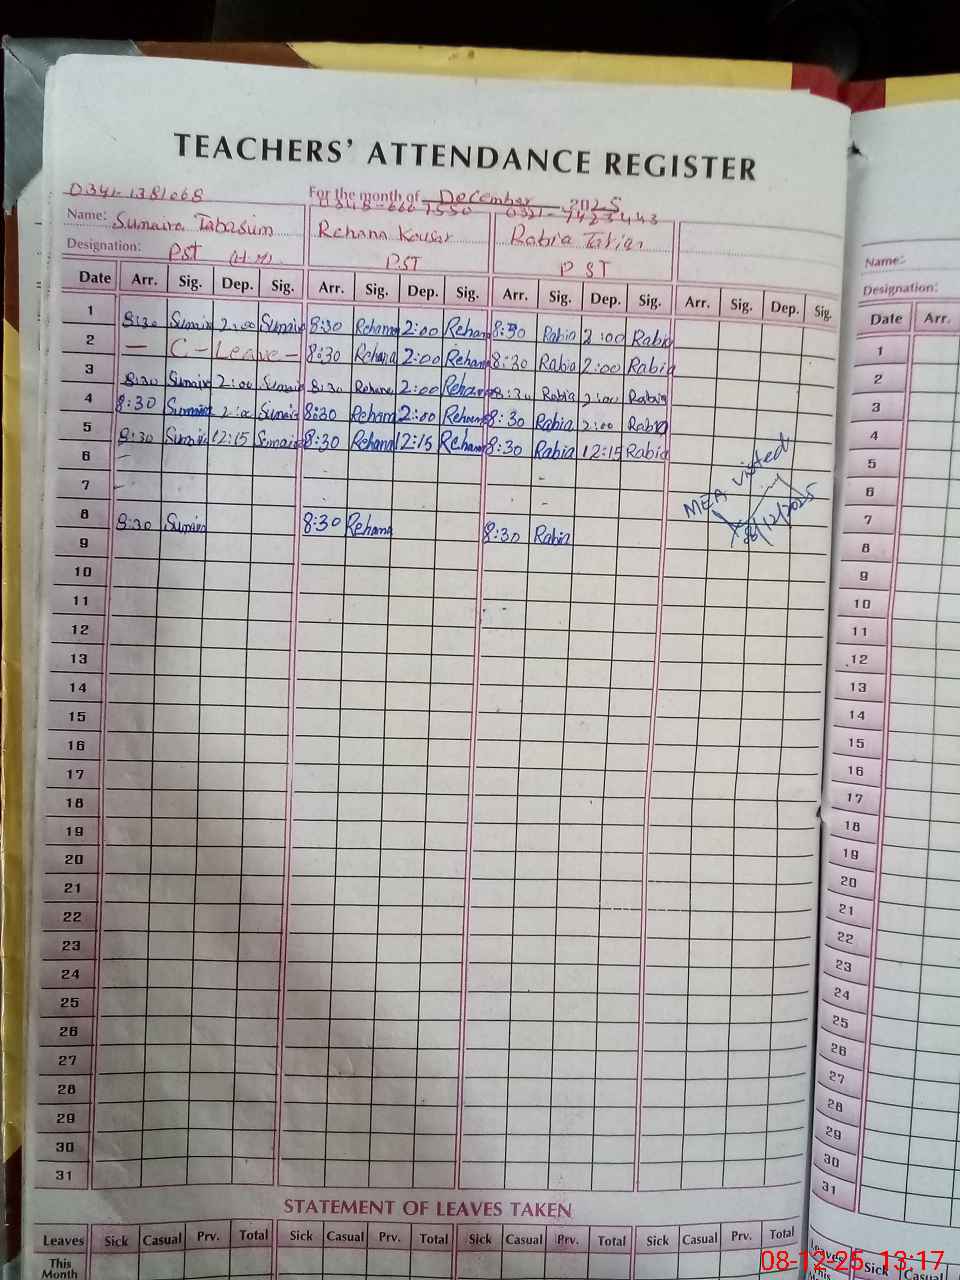 TEACHERS' ATTENDANCE REGISTER
0341-1381068 For the month of December 2025
0348-6667550 0321-7423443
Name: Sumaira Tabasum Rehana Kousar Rabia Tariq
Designation: PST (H.M) PST PST
Date Arr. Sig. Dep. Sig. Arr. Sig. Dep. Sig. Arr. Sig. Dep. Sig. Arr. Sig. Dep. Sig.
1 8:30 Sumaira 2:00 Sumaira 8:30 Rehana 2:00 Rehana 8:30 Rabia 2:00 Rabia
2 — C - Leave - 8:30 Rehana 2:00 Rehana 8:30 Rabia 2:00 Rabia
3 8:30 Sumaira 2:00 Sumaira 8:30 Rehana 2:00 Rehana 8:30 Rabia 2:00 Rabia
4 8:30 Sumaira 2:00 Sumaira 8:30 Rehana 2:00 Rehana 8:30 Rabia 2:00 Rabia
5 8:30 Sumaira 12:15 Sumaira 8:30 Rehana 12:15 Rehana 8:30 Rabia 12:15 Rabia
6 -
7 - -
8 8:30 Sumaira 8:30 Rehana 8:30 Rabia
MEA visted
8/12/2025
9
10
11
12
13
14
15
16
17
18
19
20
21
22
23
24
25
26
27
28
29
30
31
STATEMENT OF LEAVES TAKEN
Leaves Sick Casual Prv. Total Sick Casual Prv. Total Sick Casual Prv. Total Sick Casual Prv. Total
This Month
Name:
Designation:
Date Arr.
1
2
3
4
5
6
7
8
9
10
11
12
13
14
15
16
17
18
19
20
21
22
23
24
25
26
27
28
29
30
31
Leaves Sick Casual
This
08-12-25 13:17